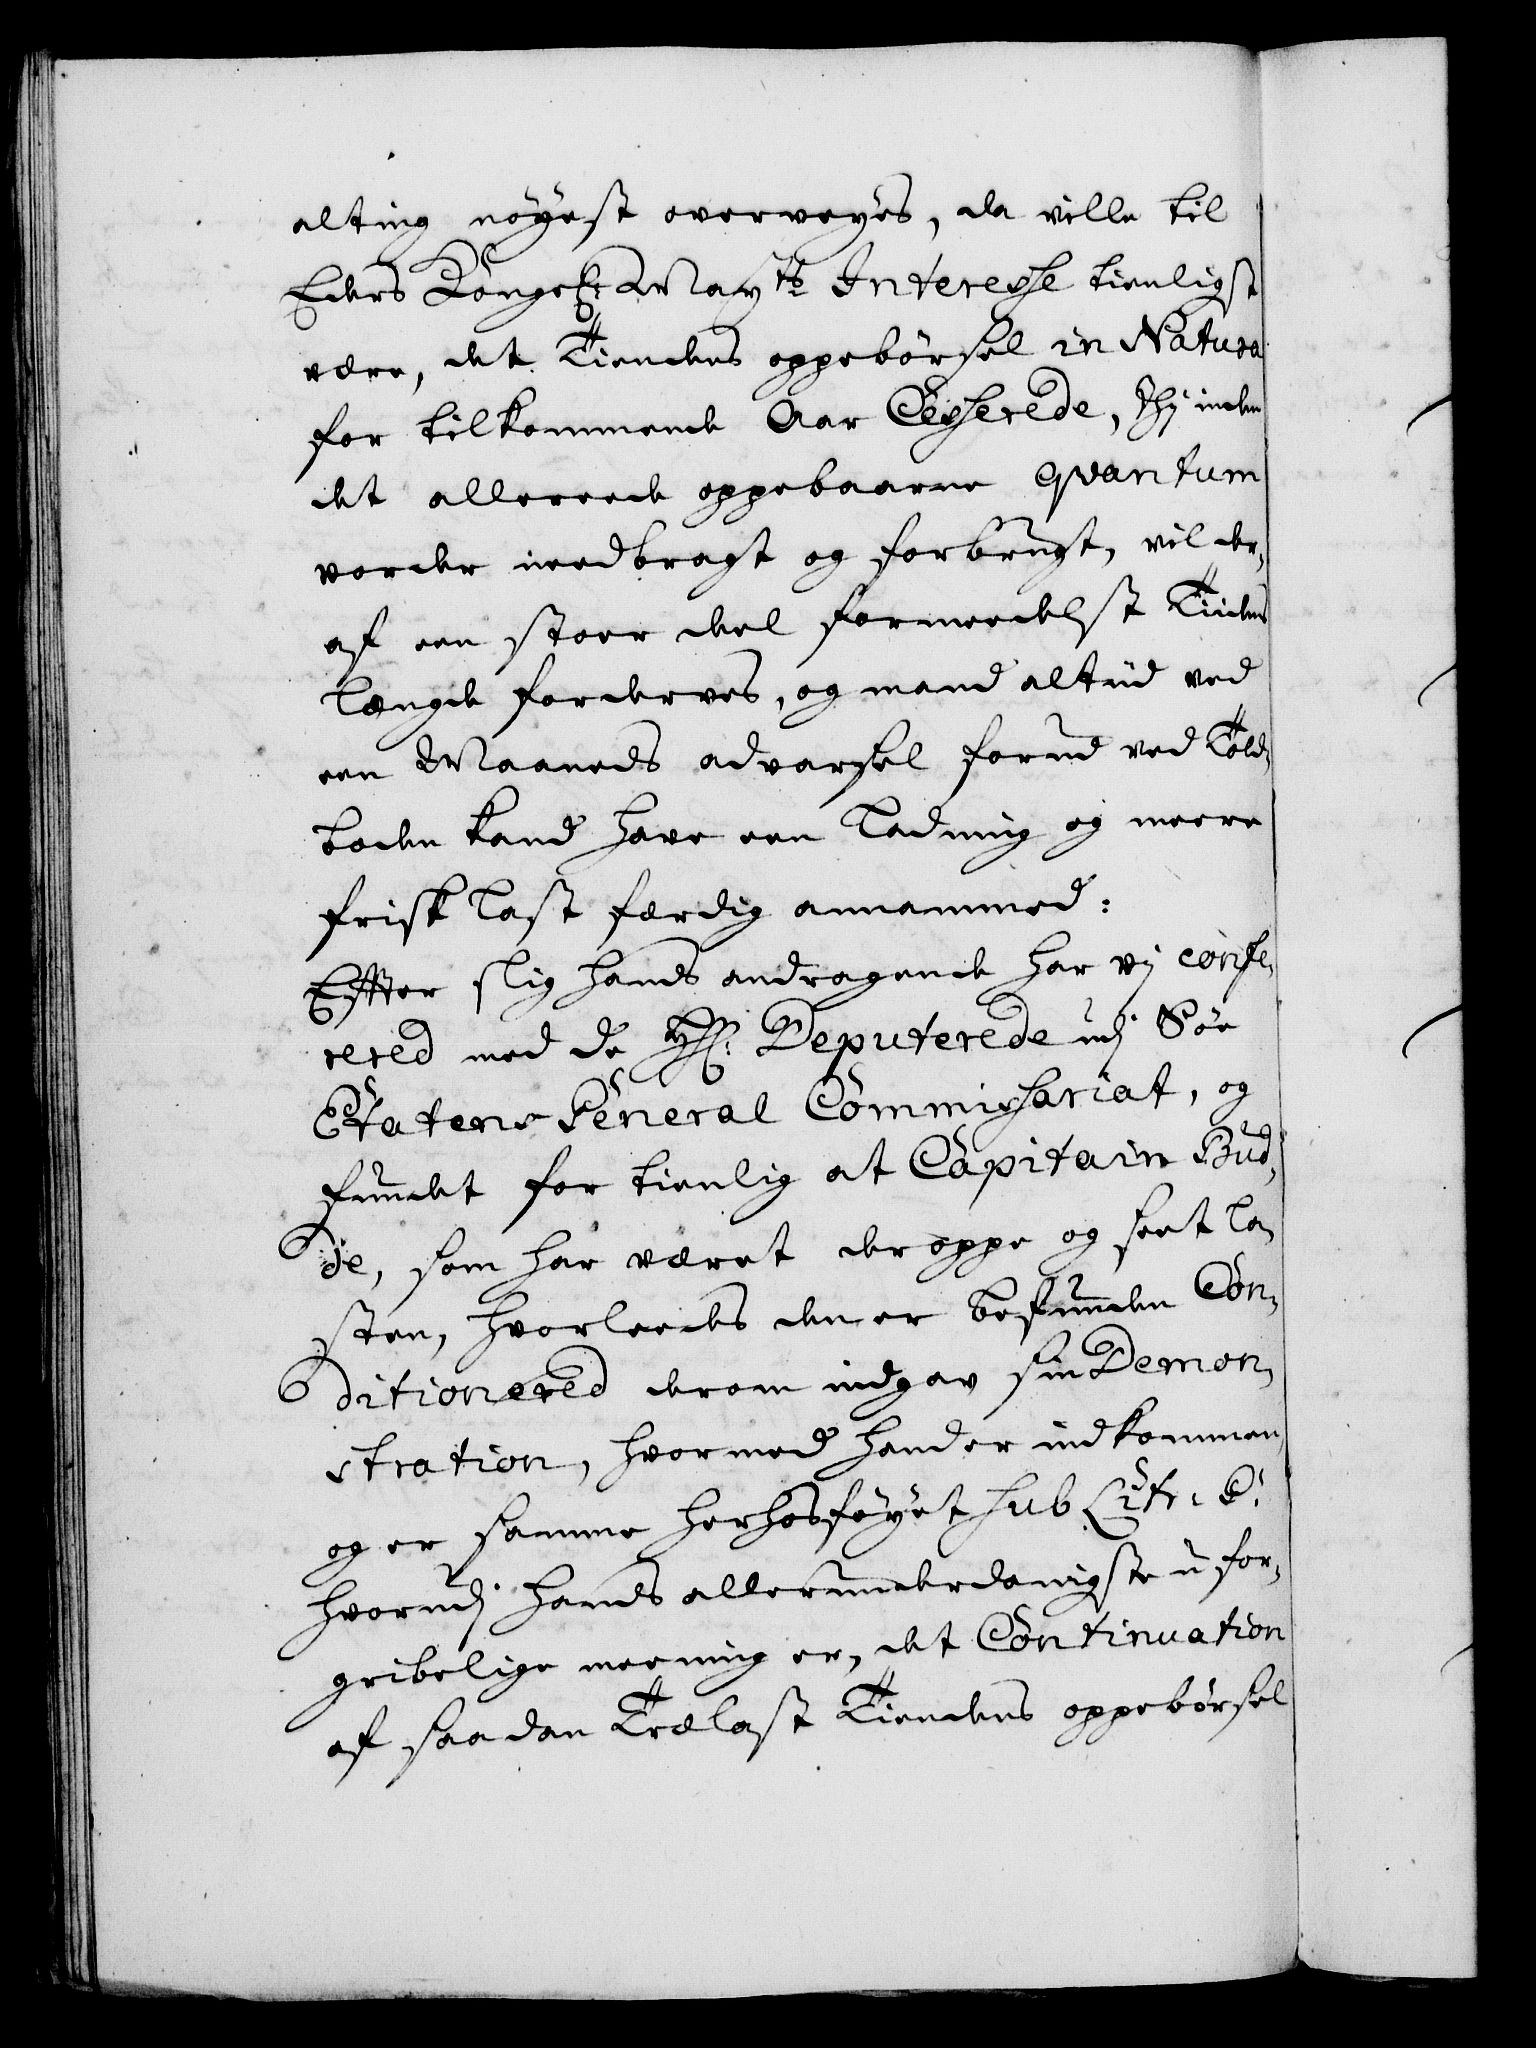 alting nöyest overveyes, da ville til
Eders Kongel: May:ts Interesse tienligst
være, det Tiendens oppebörsel in Natura
for tilkommende Aar Cesserede, thj inden
det allereede oppebaarne qvantum
vorder needbragt og forbrugt, vil der,
af een stoer deel formeedelst Tidens
Længde forderves, og mand altiid ved
een Maaneds advarsel forud ved Told,
boden kand have een Ladning og meere
frisk Last færdig annammed:
Effter slig hands andragende har vj confe,
rered med de HH: Deputerede udj Söe
Etatens General Commissariat, og
fundet for tienlig at Capitain Bud,
de, som har været deroppe og seet La,
sten, hvorleedes den er befunden Con,
ditionered derom indgav sin Demon,
stration, hvormed hand er indkommen
og er samme herhosföyet sub Litr: C:
hvorudj hands allerunderdanigste u for,
gribelige meening er, det Continuation
af saadan Trælast Tiendens oppebörsel